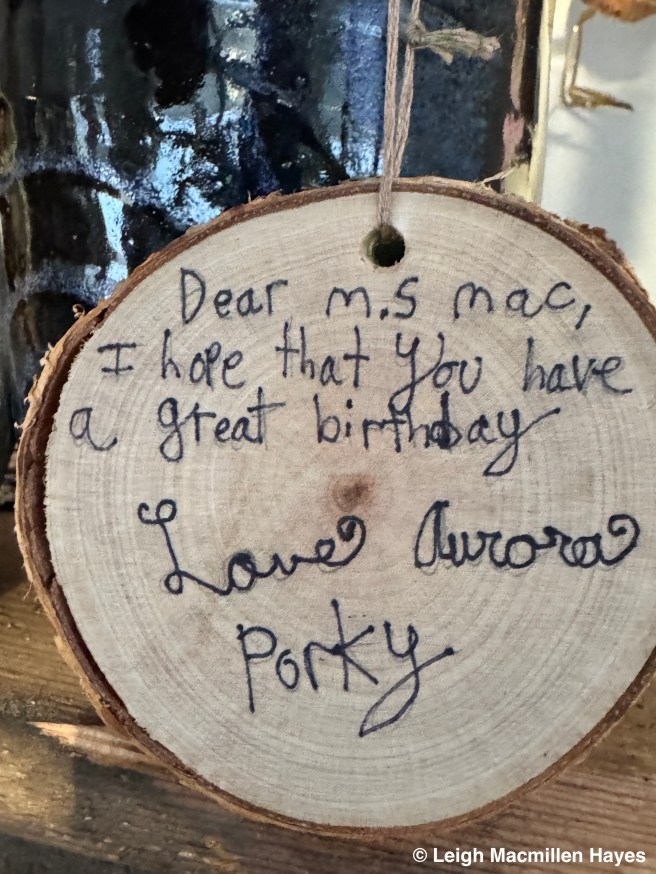 Dear m.s mac,
I hope that you have
a great birthday
Love Aurora
Porky
© Leigh Macmillen Hayes